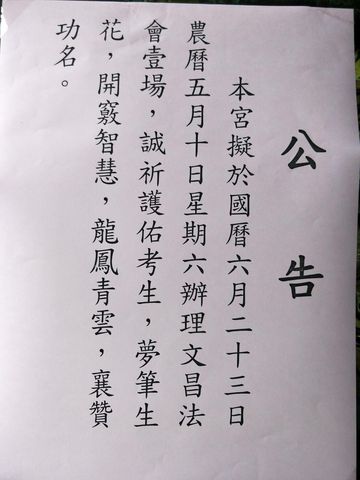 公告
本宮擬於國曆六月二十三日
農曆五月十日星期六辦理文昌法
會壹場，誠祈護佑考生，夢筆生
花，開竅智慧，龍鳳青雲，襄贊
功名。